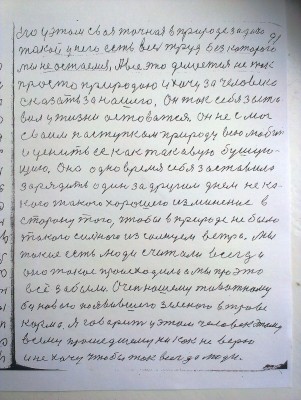 его у этом своя топная в природе за давод
такой у него есть всех труд без которого
мы не остаемся, А все это делается не так
просто природою и хочу за человека
сказать за нашего, Он так себя зыто
вил у жизни оставатся. он не смог
своим паступкам природу всю любит
и ценить се как такавую бушую-
щию. Оно одновремя себя заставило
зарядить один за другим днем не ка-
кого такого хорошего изминение в
сторону того, чтобы в природе не было
такого силного из солнцем ветра. Мы
такие есть люди считали всегда
оно такое происходило а мы про это
всё забыли. Очен нашему животному
бы нового появившего зеленого в траве
корма. Я говорит у этом человек таму
всему прошедшему никак не верю
и не хочу чтобы так всегда люди.